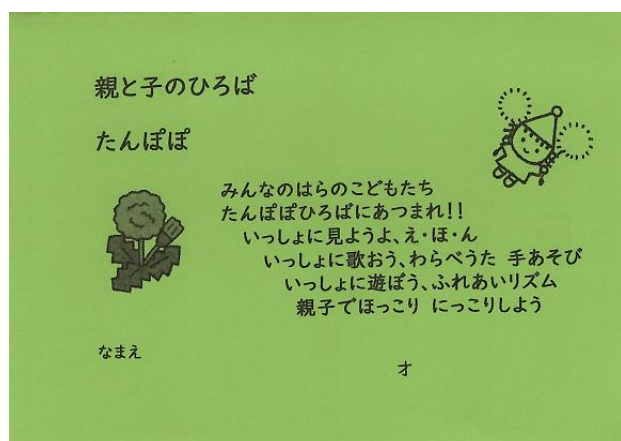 親と子のひろば
たんぽぽ
みんなのはらのこどもたち
たんぽぽひろばにあつまれ!!
いっしょに見ようよ、え・ほ・ん
いっしょに歌おう、わらべうた 手あそび
いっしょに遊ぼう、ふれあいリズム
親子でほっこり にっこりしよう
なまえ
才